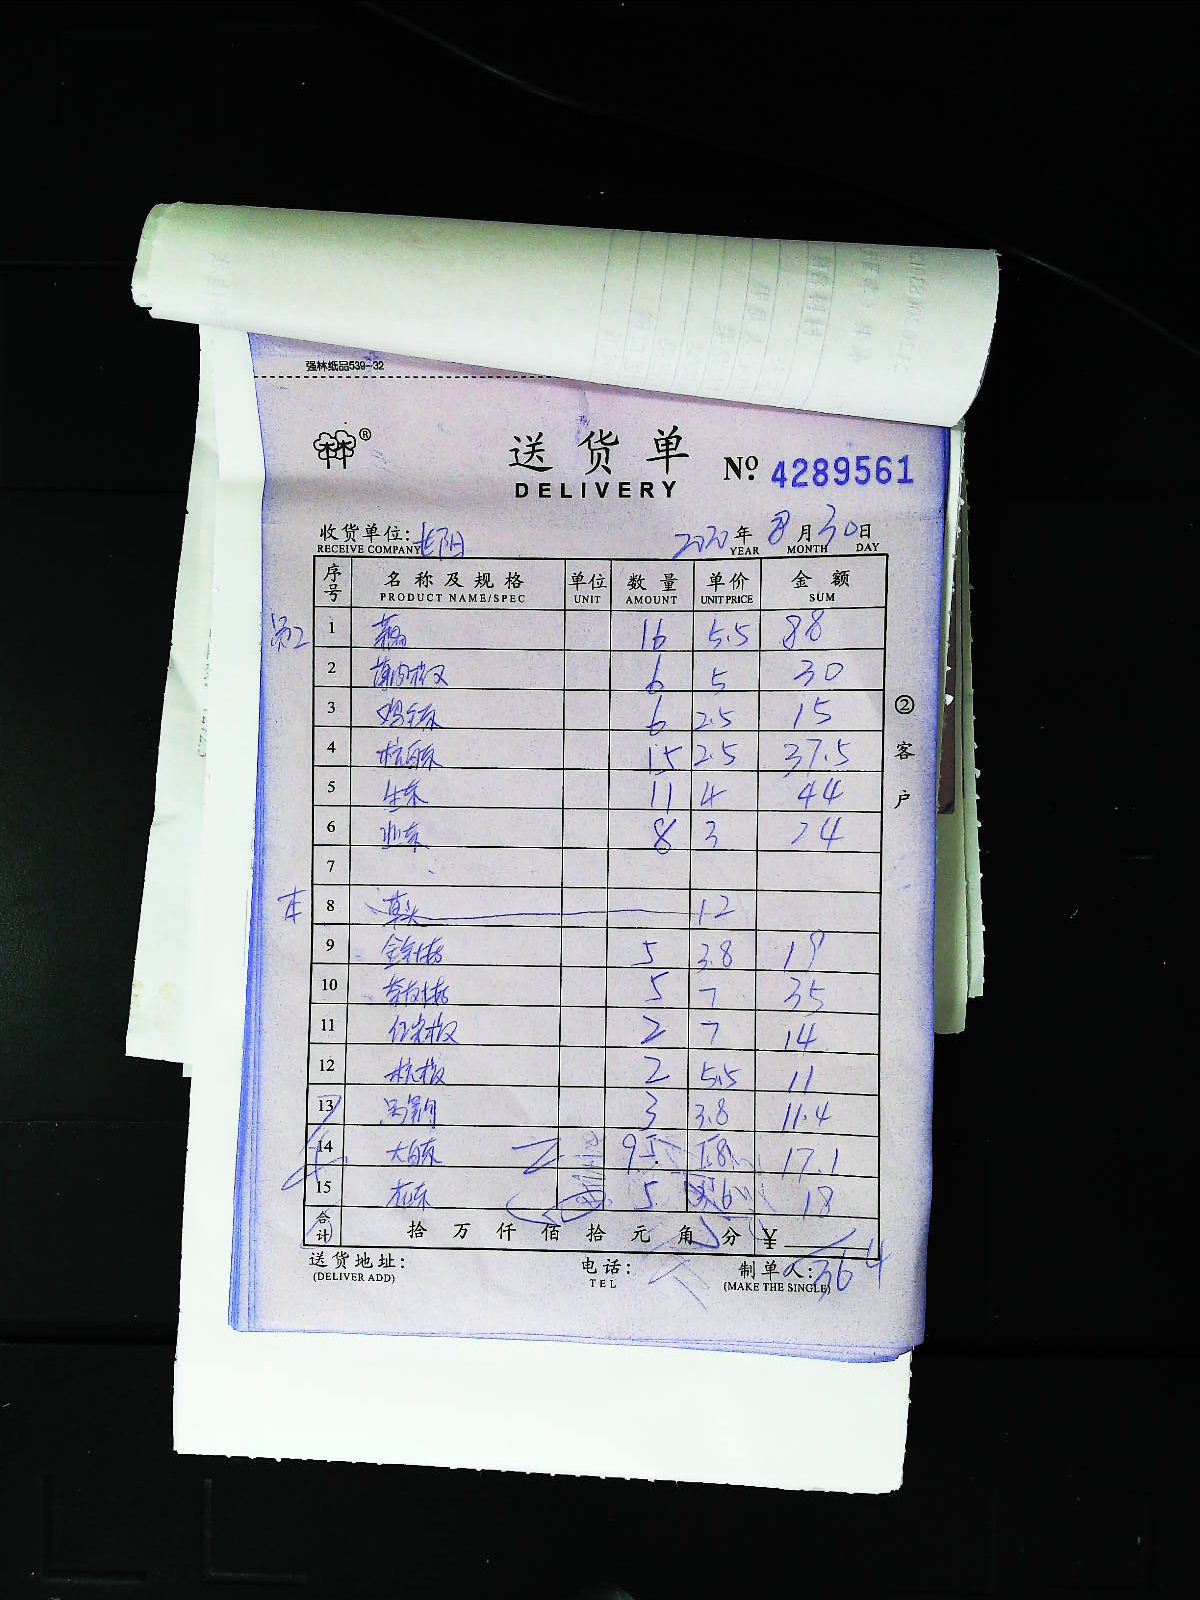 强林纸品539-32
林®
送货单
DELIVERY
No. 4289561
收货单位: 长阳 2020年8月30日
RECEIVE COMPANY YEAR MONTH DAY
序号 名称及规格 单位 数量 单价 金额
PRODUCT NAME/SPEC UNIT AMOUNT UNIT PRICE SUM
1 16 5.5 88
2 6 5 30
3 6 2.5 15
4 杭白菜 15 2.5 37.5
5 生菜 11 4 44
6 8 3 24
7
8 草头 12
9 金针菇 5 3.8 19
10 茶树菇 5 7 35
11 2 7 14
12 杭椒 2 5.5 11
13 3 3.8 11.4
14 大白菜 9.5 1.8 17.1
15 5 3.6 18
合计 拾万仟佰拾元角分 ¥ 364
送货地址: 电话: 制单人:
(DELIVER ADD) TEL (MAKE THE SINGLE)
②客户